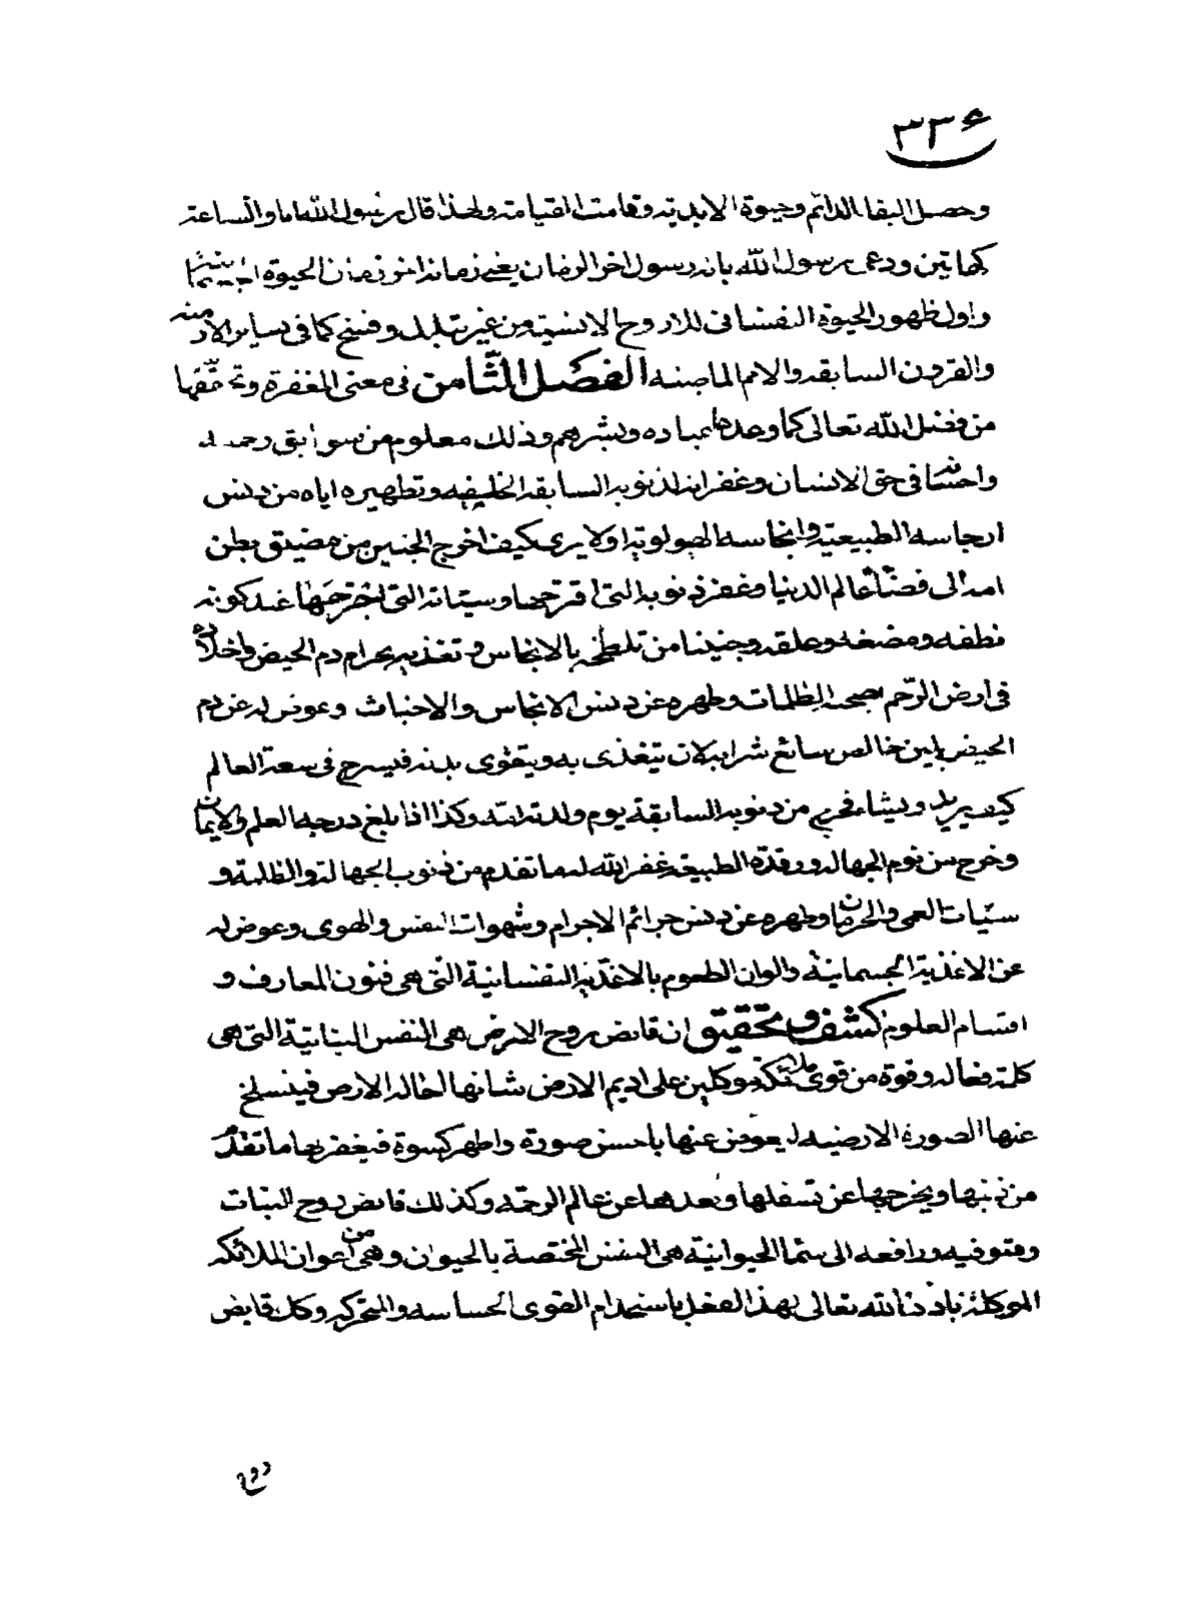 ٣٣٤
وحصل البقا الدائم وحيوة الابدية وقامت القيامة ولهذا قال رسول الله انا والساعة
كهاتين ودعى رسول الله بانه رسول اخر الزمان يعنى زمانه اخر زمان الحيوة
واول ظهور الحيوة النفسانى للاروح الانسية من غير تبدل وفسخ كما فى ساير الازمنه
والقرون السابقه والامم الماضيه الفصل الثامن فى معنى المغفرة وتحققها
من فضل الله تعالى كما وعدها عباده وبشرهم وذلك معلوم من سوابق رحمه له
واحسانه فى حق الانسان وغفرانه لذنوبه السابقه الخليقيه وتطهيره اياه من دنس
ارجاسه الطبيعية وانجاسه الهيولوية اولا يرى كيف اخرج الجنين من مضيق بطن
امه الى فضاء عالم الدنيا وغفر ذنوبه التى اقترحها وسيئاته التى اجترحها عند كونه
نطفه ومضغه وعلقه وجنينا من تلطخه بالانجاس وتغذيه بحرام دم الحيض واخلاده
فى ارض الرحم الظلمات وطهره عن دنس الانجاس والاخباث وعوض له عن دم
الحيض بلبن خالص سائغ شرابه لان تيغذى به ويتقوى بدنه فيسرح فى سعة العالم
كيف يريد ويشاء فخرج من ذنوبه السابقة يوم ولدته امه وكذا اذا بلغ درجه العلم والايمان
وخرج من نوم الجهاله ورقدة الطبيعه غفر الله له ما تقدم من ذنوب الجهالة والظلمة و
سيّيات العمى والحرمان وطهره عن دنس جرائم الاجرام وشهوات النفس والهوى وعوض له
عن الاغذية الجسمانية والوان الطعوم بالاغذيه النفسانية التى هى فنون المعارف و
اقسام العلوم كشف وتحقيق ان قابض روح الارض هى النفس النباتية التى هى
كلمة فعاله وقوة من قوى ملائكة موكلين على اديم الارض شانها احاله الارض فينسلخ
عنها الصورة الارضيه ليعوض عنها باحسن صورة واطهر كسوة فيغفر لها ما تقدم
من ذنبها ويخرجها عن تسفلها وبعدها عن عالم الرحمه وكذلك قابض روح النبات
ومتوفيه ورافعه الى سما الحيوانية هى النفس المختصة بالحيوان وهى من اعوان الملائكه
الموكلة باذن الله تعالى بهذا الفعل باستخدام القوى الحساسه والمتحركه وكل قابض
روح